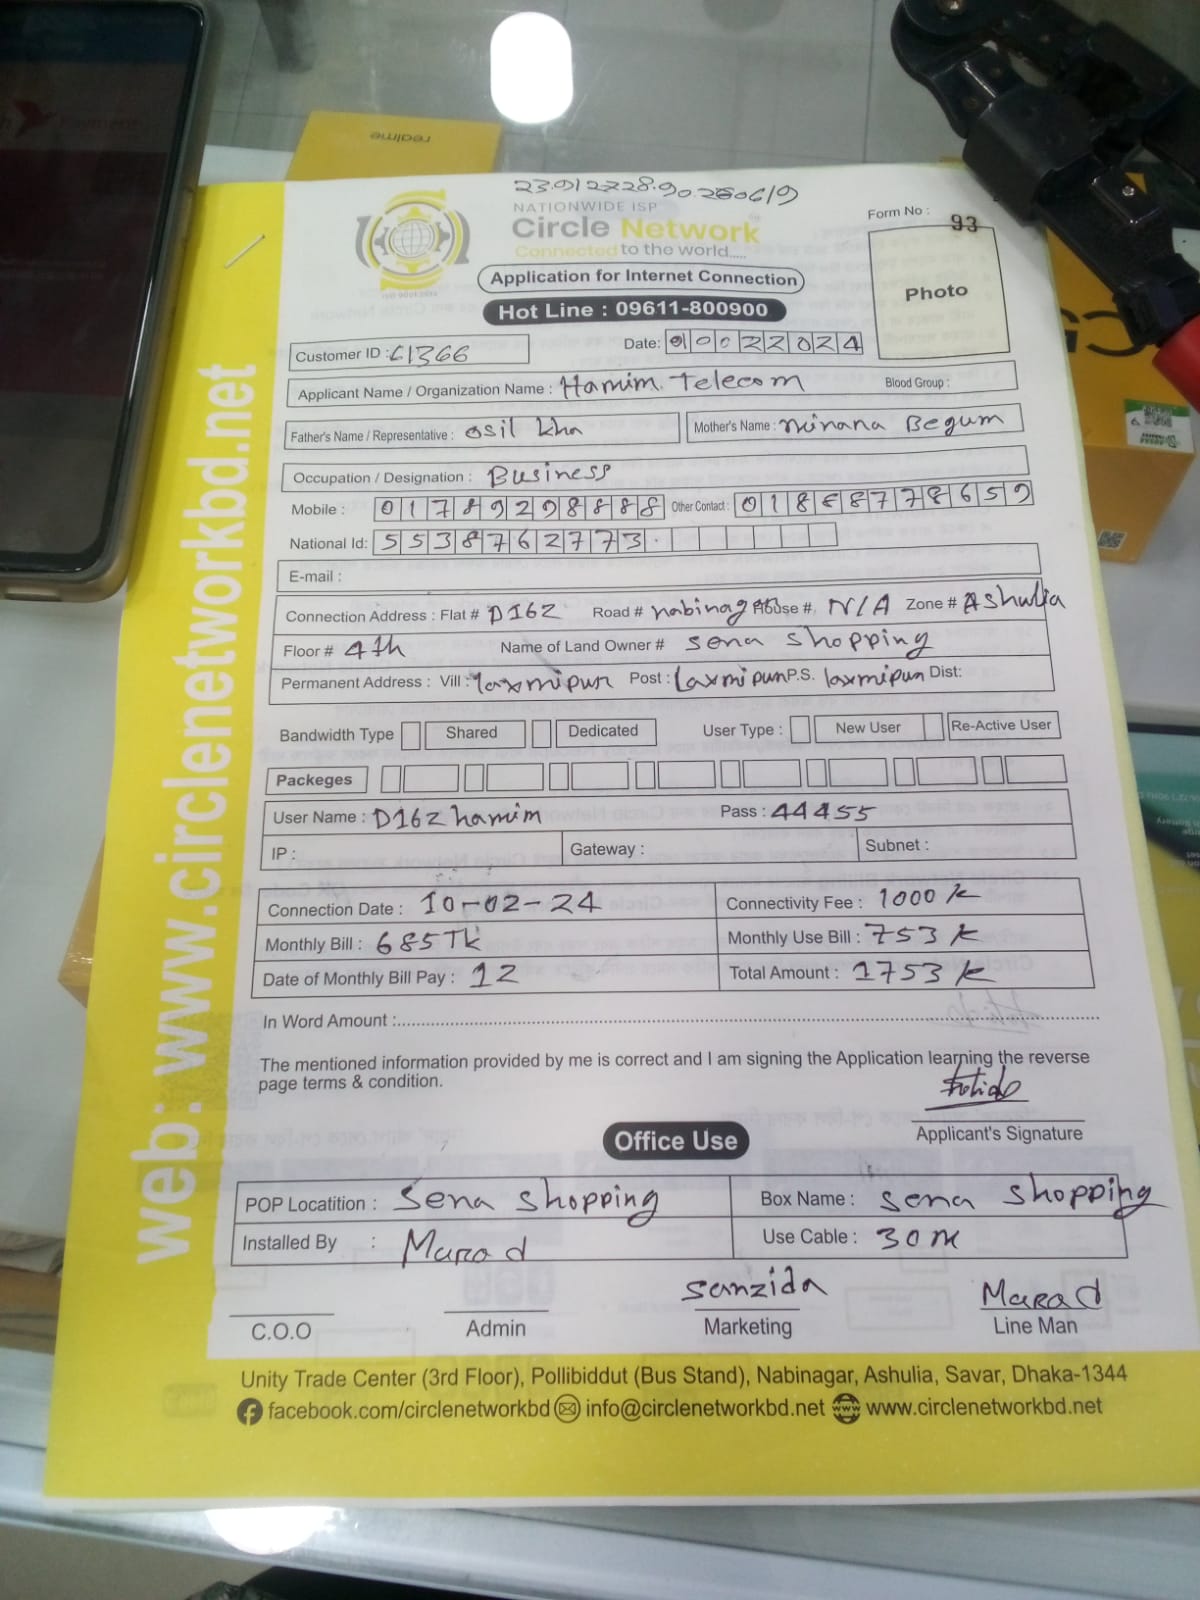 realme
23.912728.90.280619
NATIONWIDE ISP
Circle Network
Connected to the world.....
Application for Internet Connection
Hot Line : 09611-800900
Form No : 93
Photo
Customer ID : C1366
Date: 10022024
Applicant Name / Organization Name : Hamim Telecom Blood Group :
Father's Name / Representative : osil kha Mother's Name : minana Begum
Occupation / Designation : Business
Mobile : 01789298888 Other Contact : 01868778659
National Id: 5538762773
E-mail :
Connection Address : Flat # D162 Road # nabinagar House # N/A Zone # Ashulia
Floor # 4th Name of Land Owner # sena shopping
Permanent Address : Vill : laxmipur Post : Laxmipur P.S. laxmipur Dist:
Bandwidth Type Shared Dedicated User Type : New User Re-Active User
Packeges
User Name : D162hamim Pass : 44455
IP : Gateway : Subnet :
Connection Date : 10-02-24 Connectivity Fee : 1000 k
Monthly Bill : 685Tk Monthly Use Bill : 753 k
Date of Monthly Bill Pay : 12 Total Amount : 1753 k
In Word Amount :
The mentioned information provided by me is correct and I am signing the Application learning the reverse
page terms & condition.
Applicant's Signature
Office Use
POP Locatition : Sena shopping Box Name : sena shopping
Installed By : Marod Use Cable : 30m
Sanzida Marod
C.O.O Admin Marketing Line Man
Unity Trade Center (3rd Floor), Pollibiddut (Bus Stand), Nabinagar, Ashulia, Savar, Dhaka-1344
facebook.com/circlenetworkbd info@circlenetworkbd.net www.circlenetworkbd.net
web: www.circlenetworkbd.net